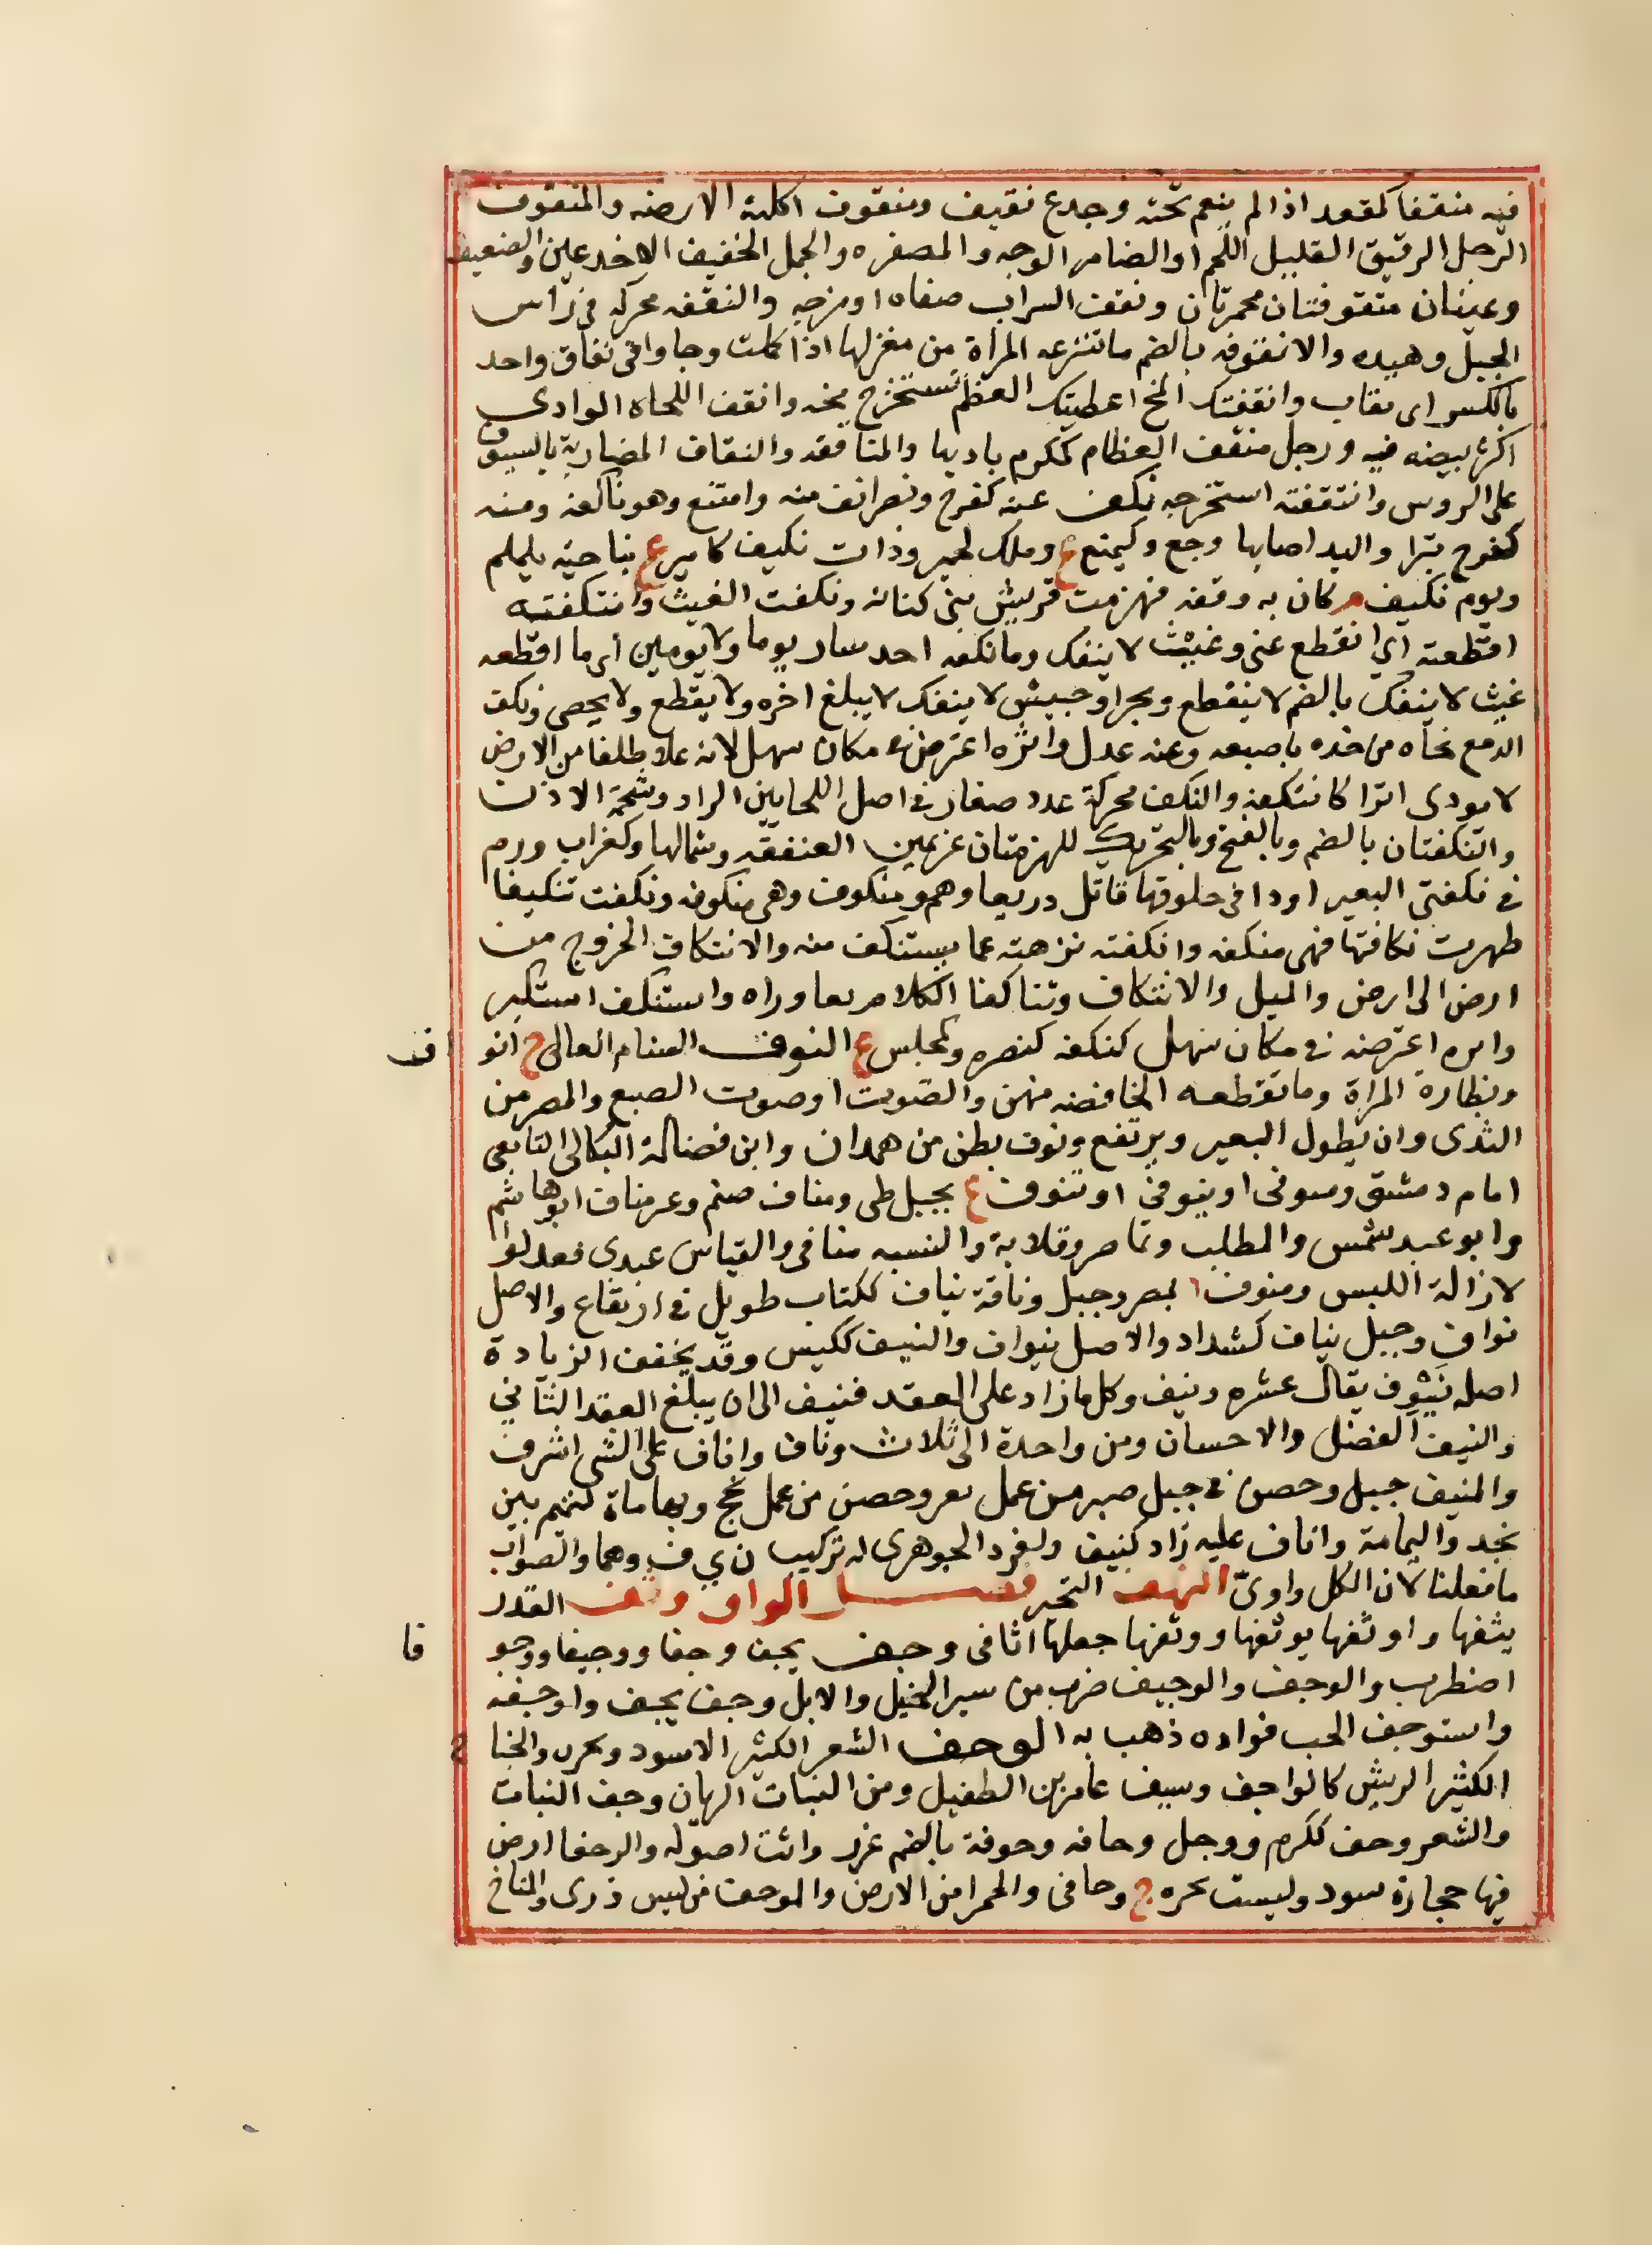 فيه منقفا كمقعد اذا لم ينعم نحته وجذع نقيف ومنقوف اكلته الارضه والمنقوف
الرجل الرقيق القليل اللحم او الضامر الوجه والمصفره والجمل الخفيف الاخدعين والضعيف
وعينان منقوفتان محمرتان ونقف الشراب صفاه او مزجه والنقفه محركه في راس
الجبل وهيده والانقوفه بالضم ما تنزعه المراة من مغزلها اذا كملت وجاوا في نقاف واحد
بالكسر اى نقاب وانقفتك المخ اعطيتك العظم تستخرج مخه وانقف اللحاه الوادى
اكثر بيضه فيه ورجل منقف العظام كمكرم باديها والمناقفه والنقاف المضاربة بالسيوف
على الروس وانتقفته استخرجه نكف عنه كفرح ونصر انف منه وامتنع وهو ناكف ومنه
كفرح تبرا واليد اصابها وجع وكيمنع ع وملك لحمير وذات نكيف كامير ع بناحية يلملم
ويوم نكيف م كان به وقعه فهزمت قريش بنى كنانه ونكفت الغيث وانتكفته
اقتطعته اى انقطع عنى وغيث لا ينكف وما نكفه احد سار يوما ولا يومين اى ما اقطعه
غيث لا ينكف بالضم لا ينقطع وبحر او جيش لا ينكف لا يبلغ اخره ولا يقطع ولا يحصى ونكف
الدمع نحاه من خده باصبعه وعنه عدل واثره اعترضه في مكان سهل لانه علا ظلفا من الارض
لا يودى اثرا كانتكفه والنكف محركة غدد صغار في اصل اللحا بين الراد وشحمة الاذن
والنكفتان بالضم وبالفتح وبالتحريك للهزمتان عن يمين العنفقه وشمالها وكغراب ورم
في نكفتى البعير او داء في حلوقها قاتل ذريعا وهو منكوف وهى منكوفه ونكفت تنكيفا
ظهرت نكافتها فهى منكفه وانكفته نزهته عما يستنكف منه والانتكاف الخروج من
ارض الى ارض والميل والانتكاف وتناكفا الكلام تعاوراه واستنكف استكبر
واثره اعترضه في مكان سهل كنكفه كنصره وكمجلس ع النوف السنام العالى ج انواف
وبظارة المراة وما تقطعه الخافضه منهن والصوت او صوت الضبع والمصر من
الثدى وان يطول البعير ويرتفع ونوف بطن من همدان وابن فضالة البكالى التابعى
امام دمشق وينوفى او ينوفى او تنوف ع بجبل طى ومناف صنم وعبد مناف ابو هاشم
وابو عبد شمس والمطلب وتماضر وقلابة والنسبه منافى والقياس عبدى فعدلوا
لازالة اللبس ومنوف ة بمصر وجبل وناقة نياف ككتاب طويل في ارتفاع والاصل
نواف وجبل نياف كشداد والاصل نيواف والنيف ككيس وقد يخفف الزيادة
اصله نيوف يقال عشره ونيف وكل ما زاد على العقد فنيف الى ان يبلغ العقد الثاني
والنيف الفضل والاحسان ومن واحدة الى ثلاث وناف واناف على الشى اشرف
والمنيف جبل وحصن في جبل صبر من عمل تعز وحصن من عمل لحج وبهاء ماة لتميم بين
نجد واليمامة واناف عليه زاد كنيف وافرد الجوهرى له تركيب ن ي ف وهما والصواب
ما فعلنا لان الكل واوىّ النهف التحير فصل الواو وثف القدر
يثفها واوثفها يوثفها ووثفها جعلها اثافى وجف يجف وجفا ووجيفا ووجوفا
اضطرب والوجف والوجيف ضرب من سير الخيل والابل وجف يجف واوجفه
واستوجف الحب فواده ذهب به الوحف الشعر الكثير الاسود ويحرك والجناح
الكثير الريش كالواحف وسيف عامر بن الطفيل ومن النبات الريان وحف النبات
والشعر وحف ككرم ووجل وحافه وحوفة بالضم غزر واثت اصوله والوحفا ارض
فيها حجارة سود وليست بحره ج وحافى والحمرا من الارض والموحف من ليس ذرى والمناخ